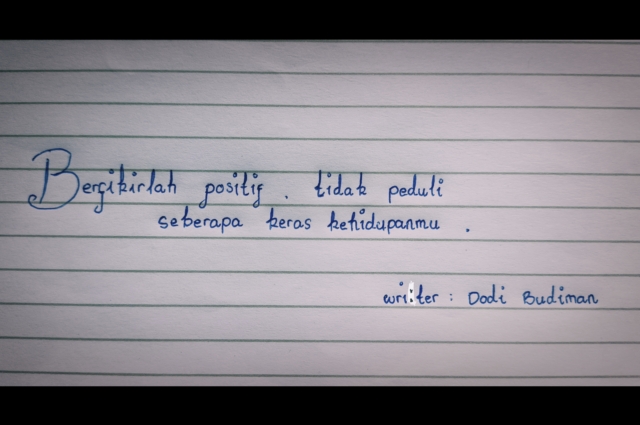 Berfikirlah positif . tidak peduli
seberapa keras kehidupanmu .
writer : Dodi Budiman